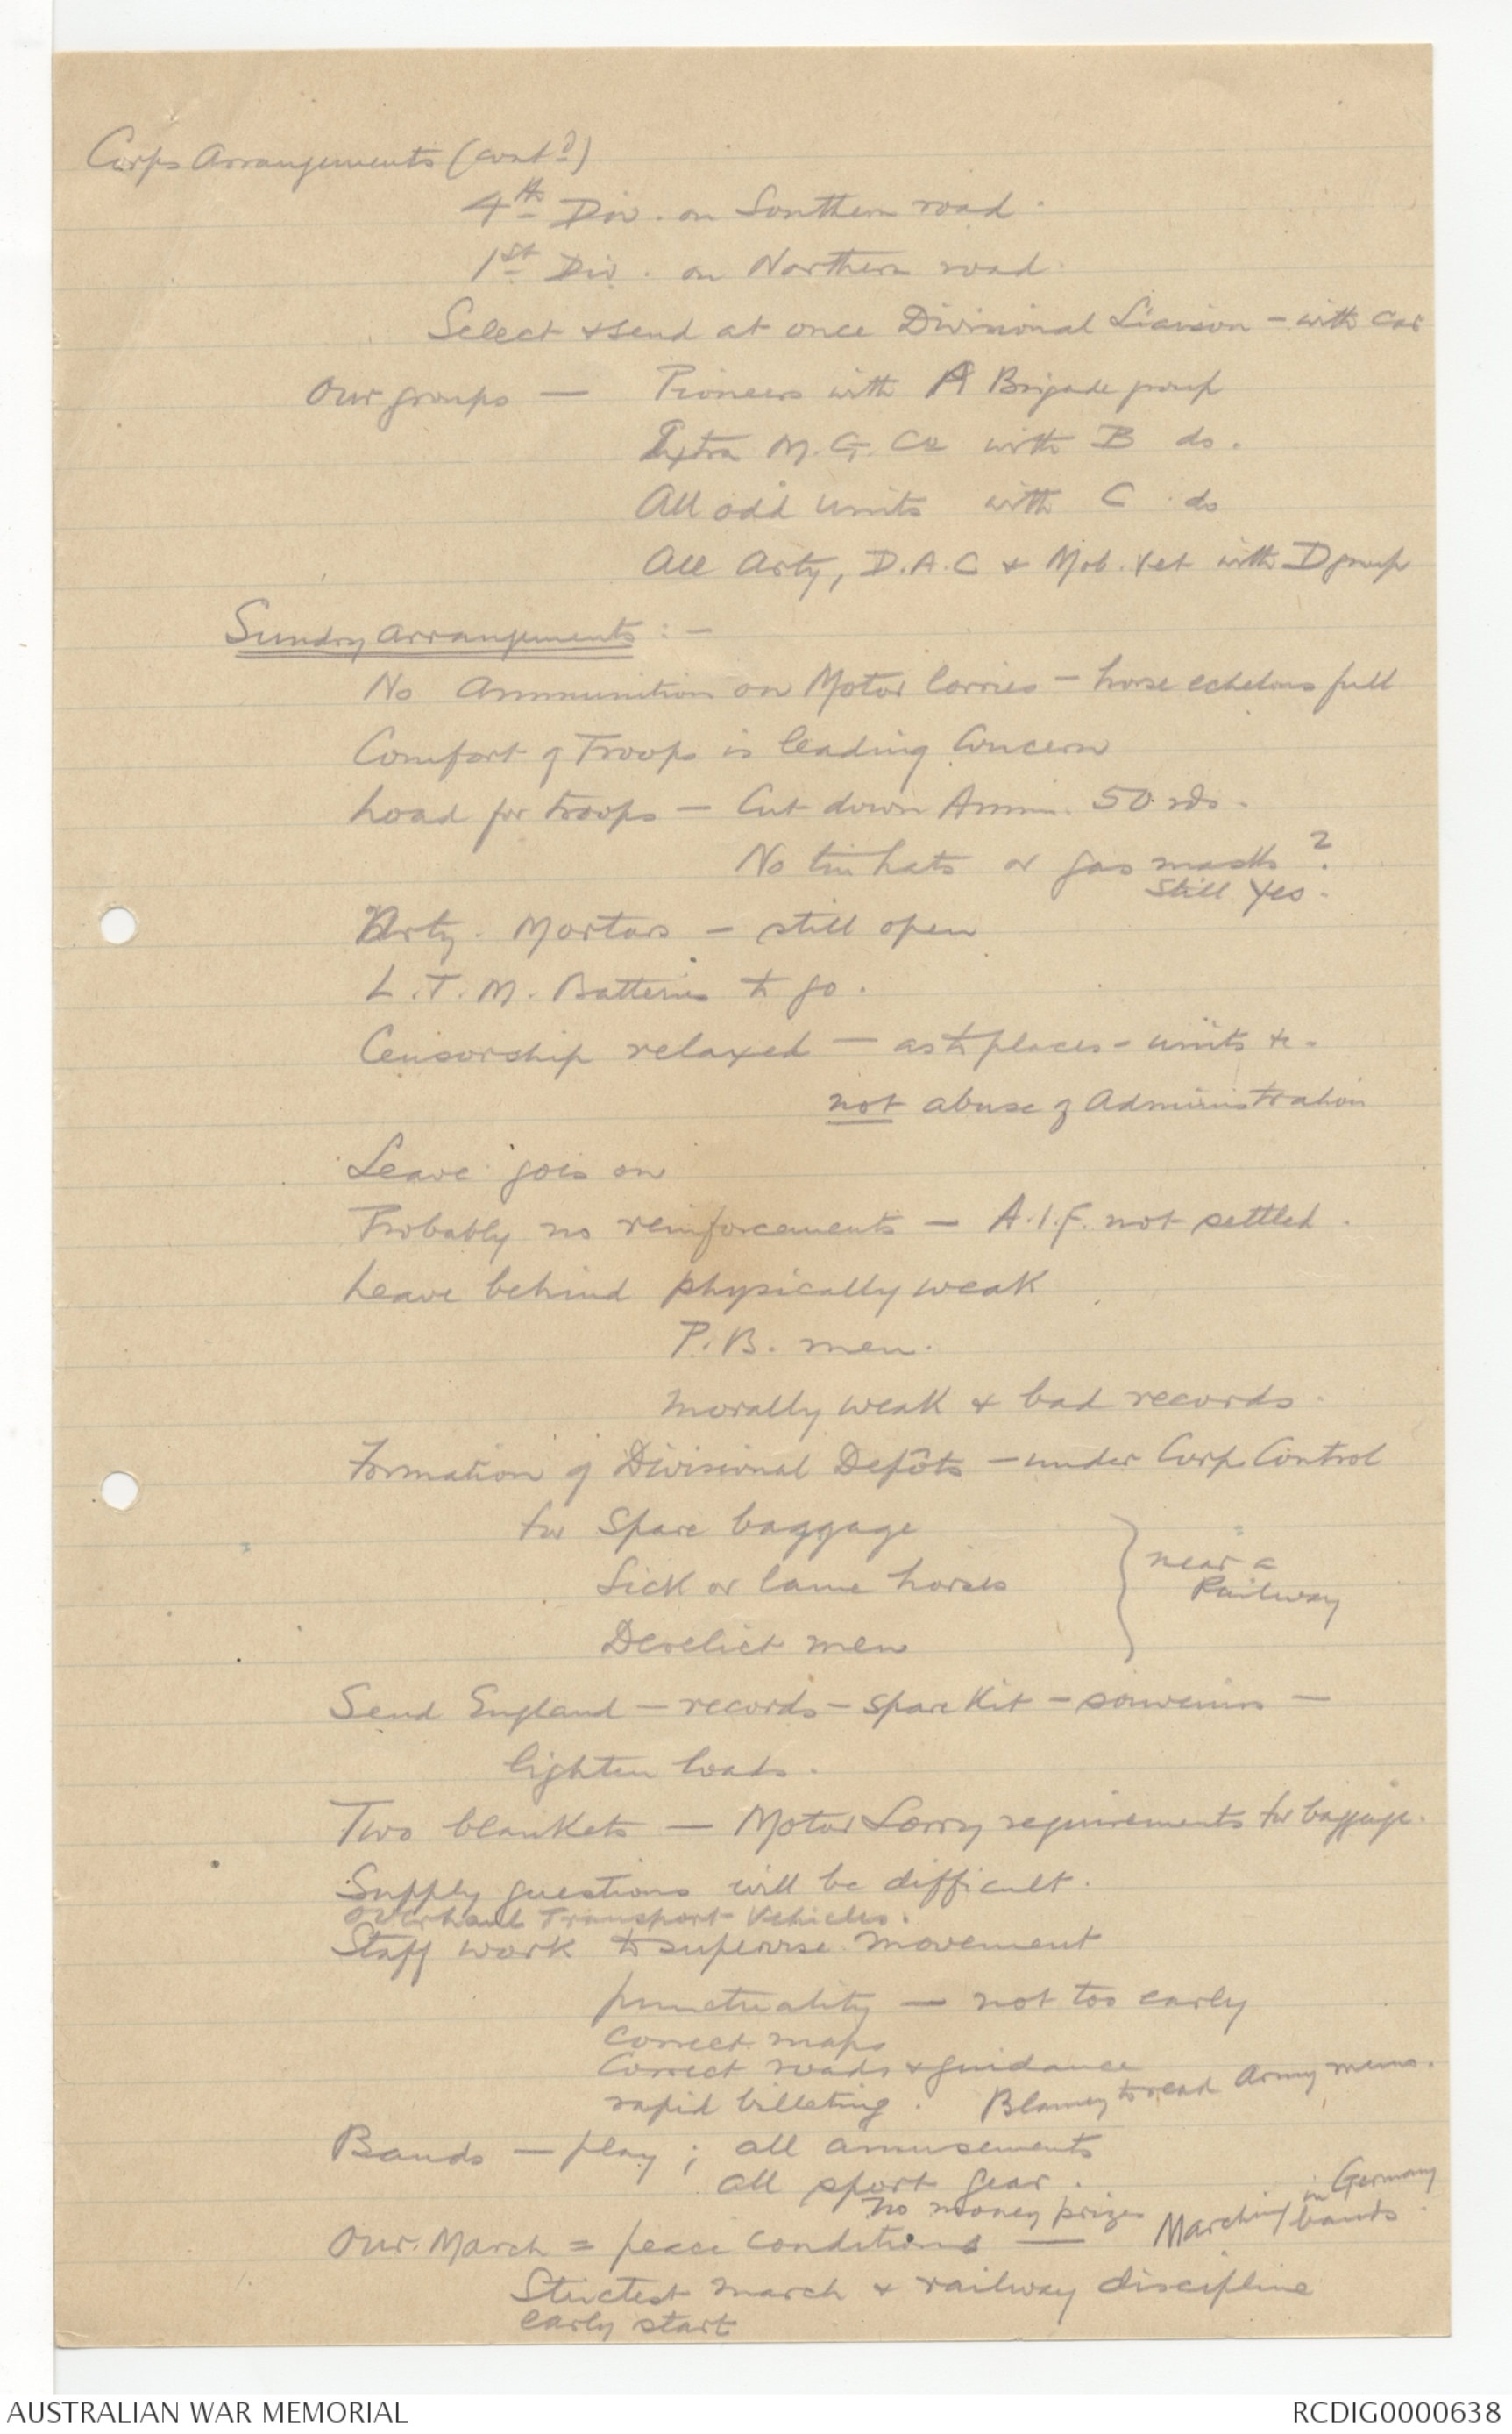 Corps Arrangements (contd)
4th Div. on Southern road.
1st Div. on Northern road.
Select & send at once Divisional Liaison - with car
Our groups — Pioneers with A Brigade group
Extra M.G. Co with B do.
All odd units with C do
All Arty, D.A.C & Mob. Vet with D group
Sundry Arrangements :-
No Ammunition on Motor lorries - horse echelons full
Comfort of Troops is leading concern
Load for troops - Cut down Ammn. 50 rds.
No tin hats or gas masks ?
Still Yes.
Arty. Mortars - still open
L.T.M. Batteries to go.
Censorship relaxed - as to places - units &c.
not abuse of Administration
Leave goes on
Probably no reinforcements - A.I.F. not settled.
Leave behind physically weak
P.B. men.
Morally weak & bad records.
Formation of Divisional Depôts - under Corps Control
for Spare baggage
Sick or lame horses
Derelict men
near a
Railway
Send England - records - spare kit - souvenirs -
lighten loads.
Two blankets - Motor Lorry requirements for baggage.
Supply questions will be difficult.
Overhaul Transport Vehicles.
Staff work to supervise movement
punctuality - not too early
Correct maps
Correct roads & guidance
rapid billeting. Blamey to read Army memo.
Bands - play ; all amusements
all sport gear.
no money prizes
Marching bands in Germany
Our March = peace conditions —
Strictest march & railway discipline
early start
AUSTRALIAN WAR MEMORIAL
RCDIG0000638